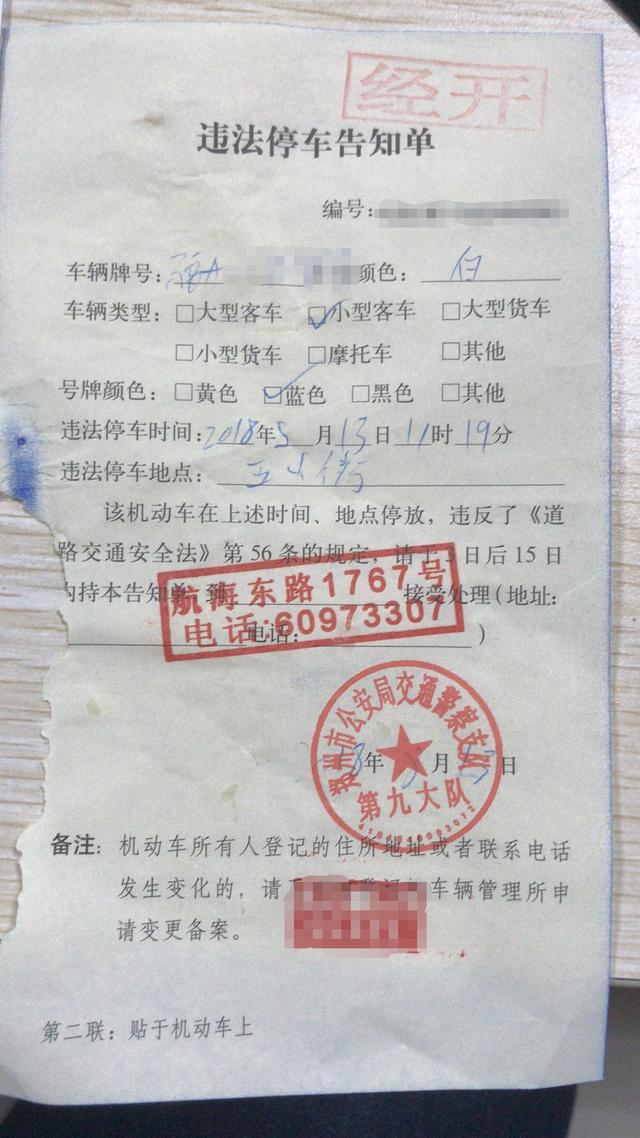 经开
违法停车告知单
编号:
车辆牌号: 豫A 颜色: 白
车辆类型: □大型客车 ☑小型客车 □大型货车
□小型货车 □摩托车 □其他
号牌颜色: □黄色 ☑蓝色 □黑色 □其他
违法停车时间: 2018年5月13日11时19分
违法停车地点:
该机动车在上述时间、地点停放，违反了《道
路交通安全法》第56条的规定，请于3日后15日
内持本告知单 到 接受处理(地址:
航海东路1767号
电话: )
电话:60973307
郑州市公安局交通警察支队
第九大队
18年 月13日
备注: 机动车所有人登记的住所地址或者联系电话
发生变化的，请 登记 车辆管理所申
请变更备案。
第二联: 贴于机动车上